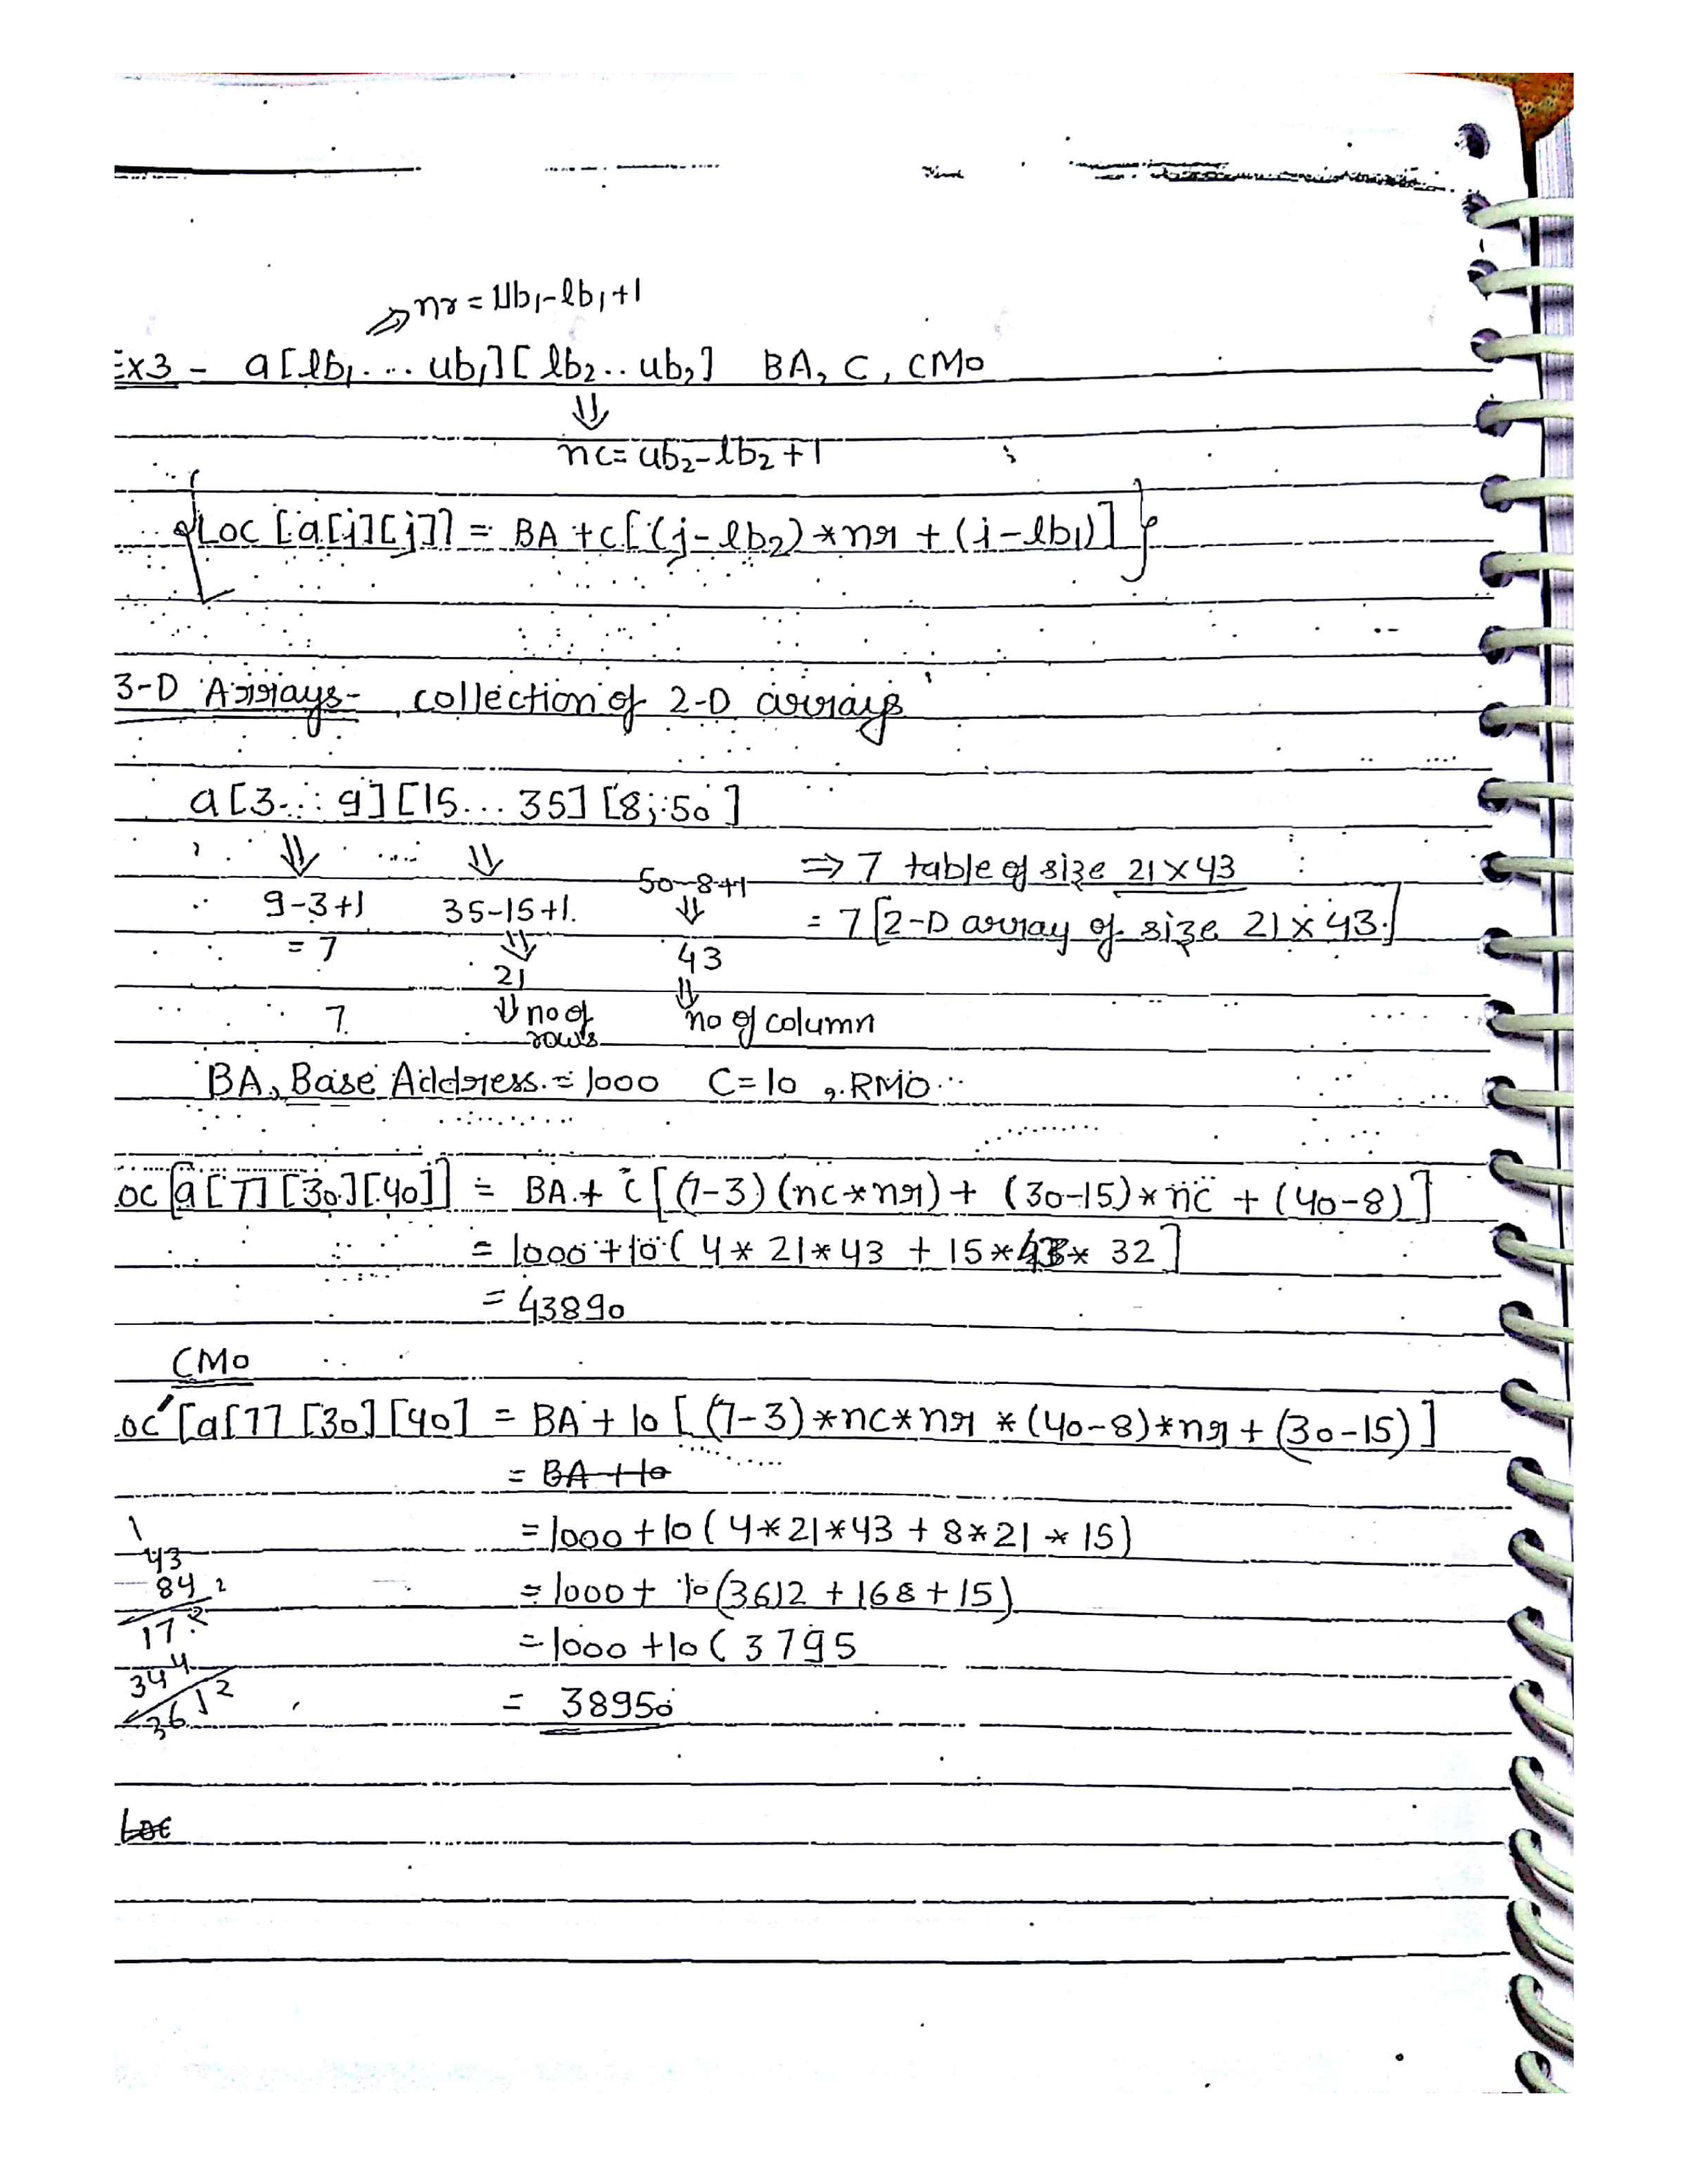 nr = Ub₁-lb₁+1
Ex3 - a[lb₁... ub₁][lb₂.. ub₂] BA, C, CMO
nc= ub₂-lb₂+1
Loc [a[i][j]] = BA +C[(j-lb₂)*nr + (i-lb₁)]
3-D Arrays- collection of 2-D arrays
a[3... 9][15... 35][8..50]
⇒ 7 table of size 21×43
9-3+1 35-15+1 50-8+1
= 7 [2-D array of size 21×43]
= 7 21 43
7 no of rows no of column
BA, Base Address = 1000 C=10, RMO
oc[a[7][30][40]] = BA + C[(7-3)(nc*nr)+ (30-15)*nc + (40-8)]
= 1000+10( 4* 21*43 + 15*43* 32]
= 43890
CMO
oc [a[7][30][40] = BA + 10 [(7-3)*nc*nr *(40-8)*nr + (30-15)]
= BA+10
=1000+10( 4*21*43 + 8*21 * 15)
=1000+ 10(3612 + 168+15)
=1000 +10( 3795
= 38950
1
43
84 2
172
344
3612
Loc